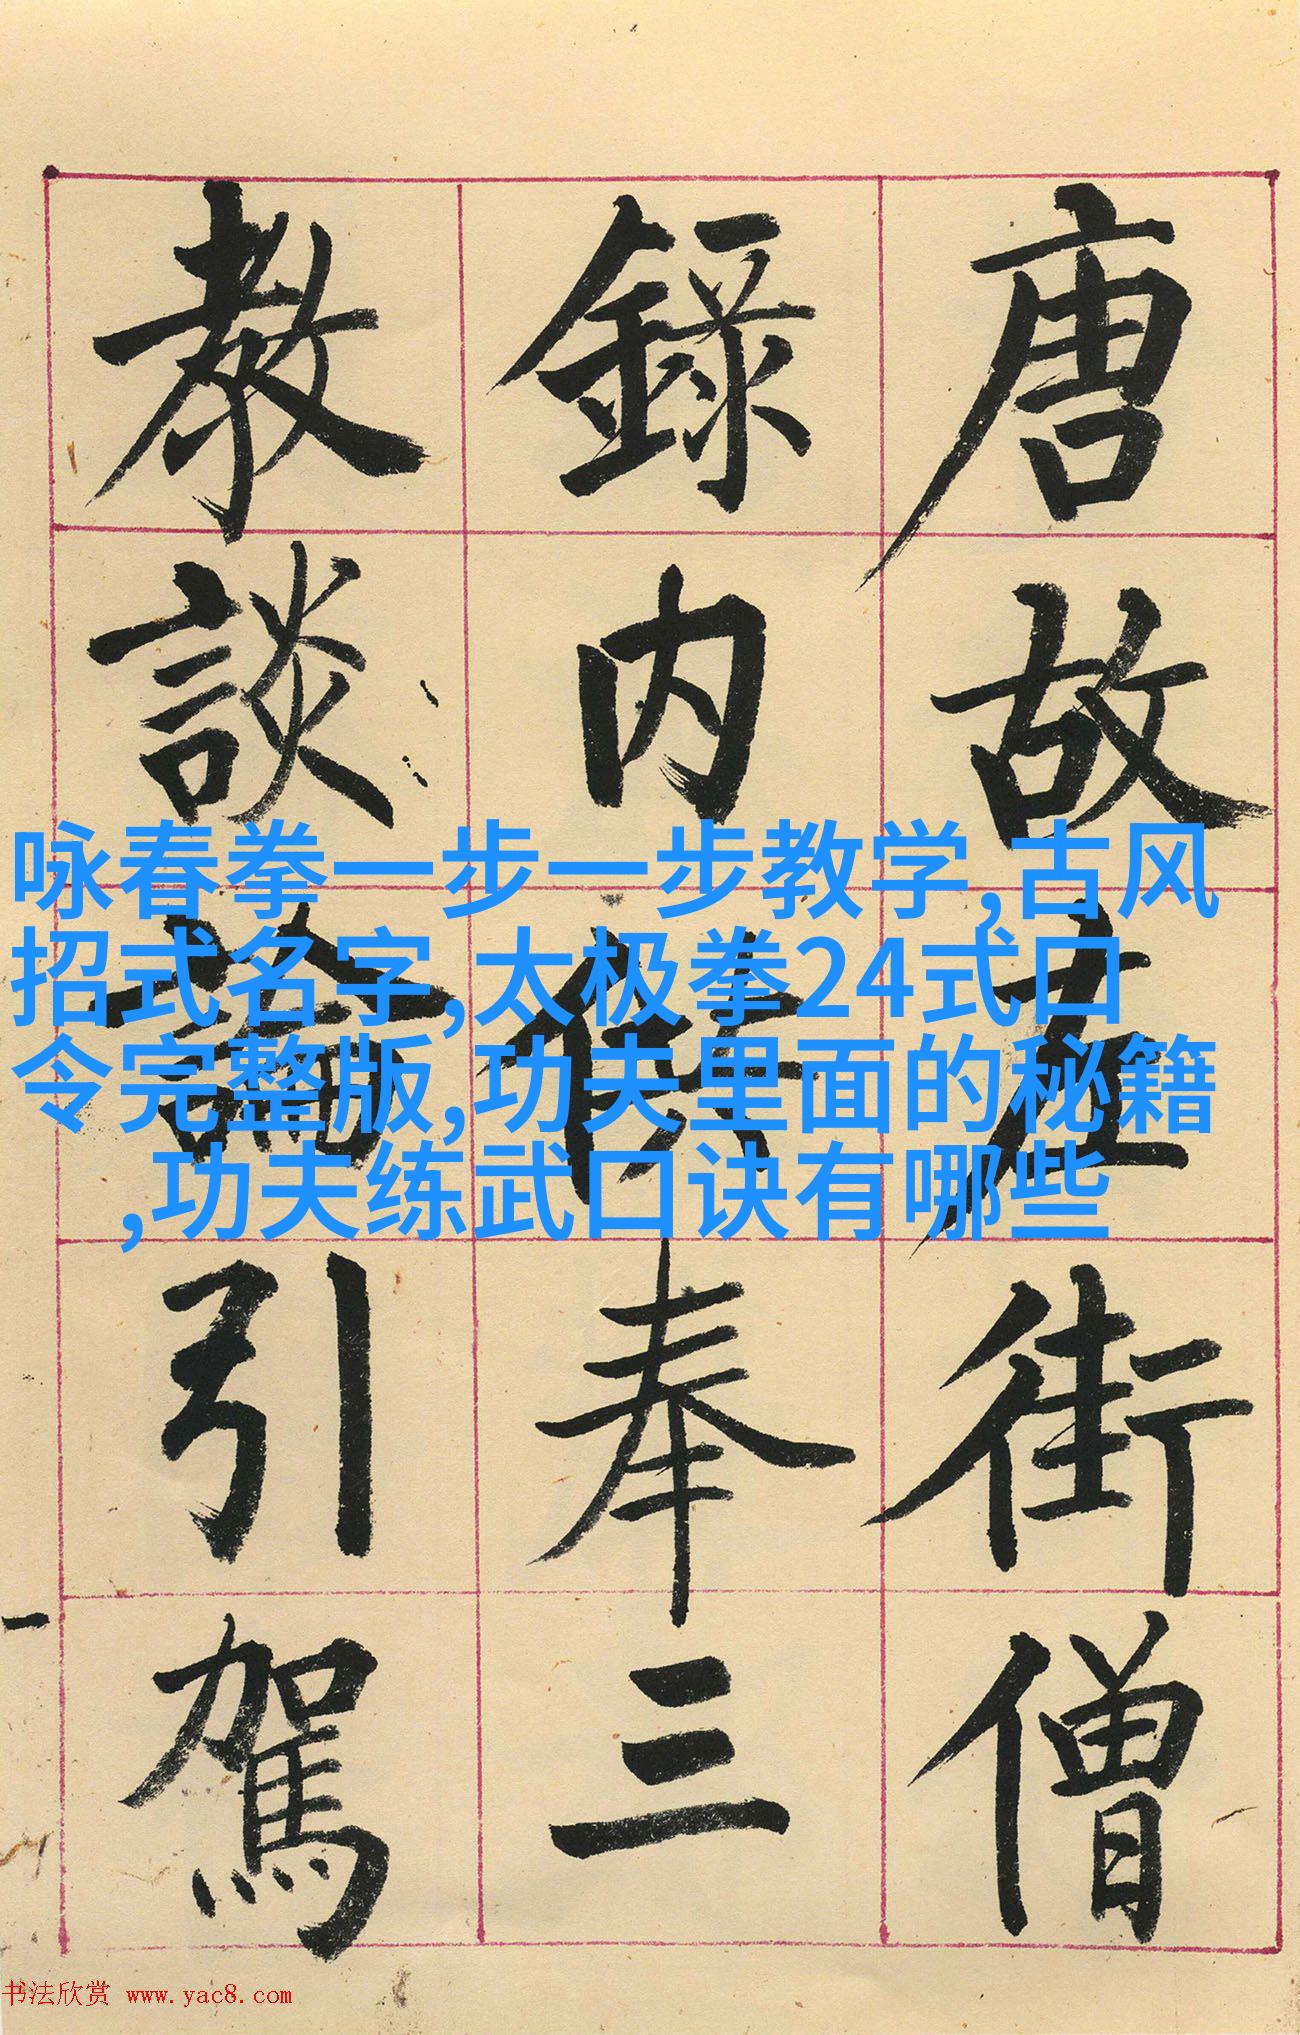 唐故左街僧
錄内供奉三
教談論引駕
咏春拳一步一步教学,古风
招式名字,太极拳24式口
令完整版,功夫里面的秘籍
,功夫练武口诀有哪些
书法欣赏 www.yac8.com